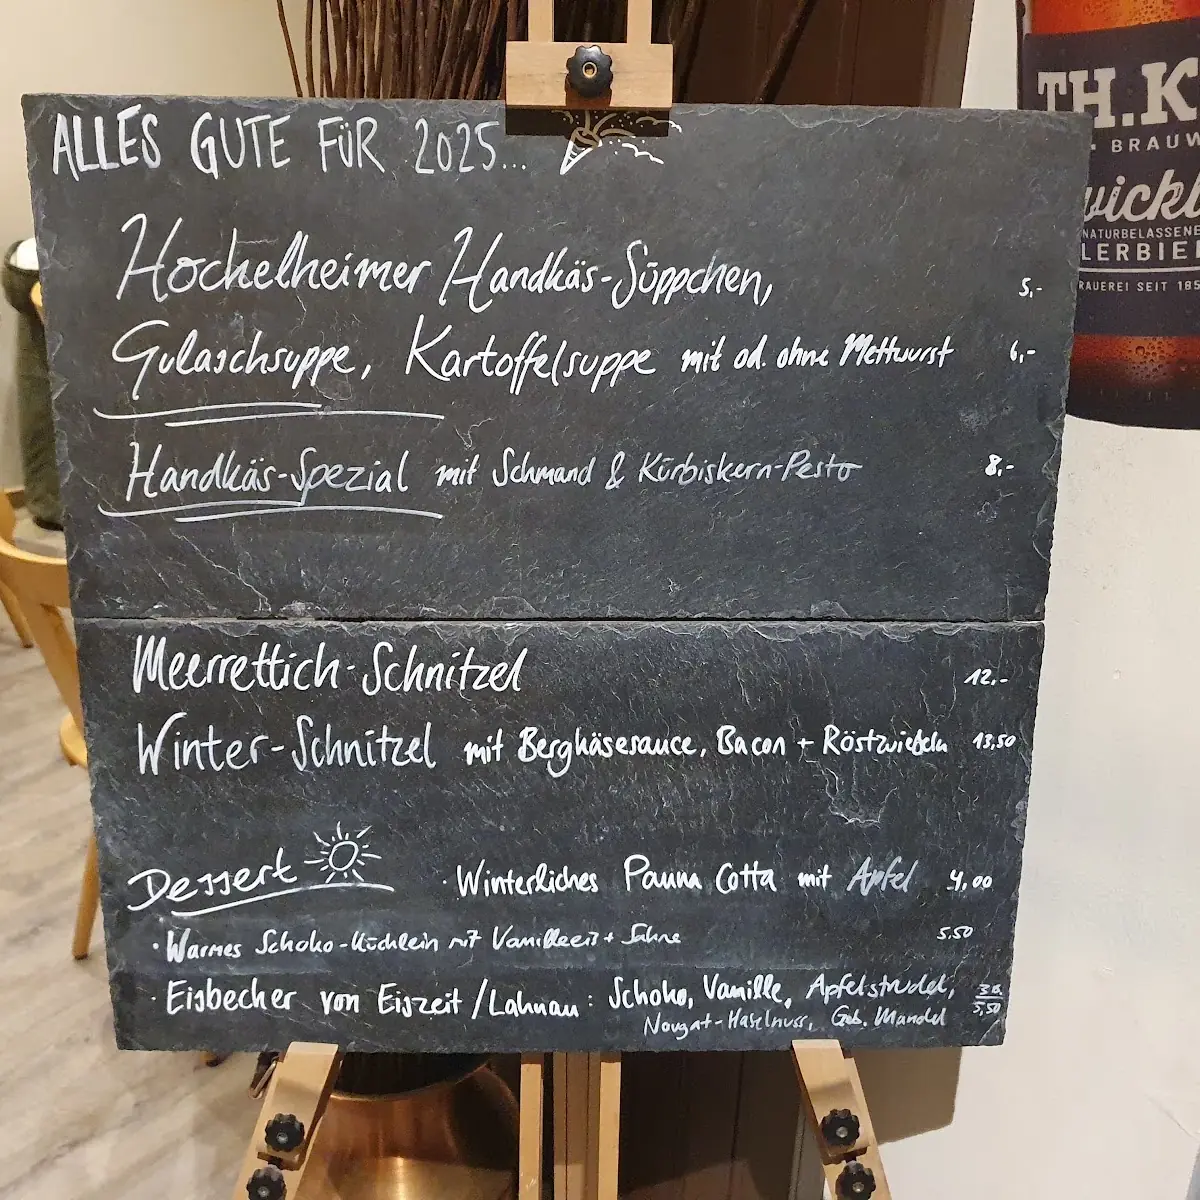 ALLES GUTE FÜR 2025...
Hochelheimer Handkäs-Süppchen, 5,-
Gulaschsuppe, Kartoffelsuppe mit od. ohne Mettwurst 6,-
Handkäs-Spezial mit Schmand & Kürbiskern-Pesto 8,-
Meerrettich-Schnitzel 12,-
Winter-Schnitzel mit Bergkäsesauce, Bacon + Röstzwiebeln 13,50
Dessert · Winterliches Panna Cotta mit Apfel 4,00
· Warmes Schoko-Küchlein mit Vanilleeis + Sahne 5.50
· Eisbecher von Eiszeit/Lahnau: Schoko, Vanille, Apfelstrudel,
Nougat-Haselnuss, Geb. Mandel 3,50
TH.K
BRAUW
wickl
NATURBELASSENE
LERBIE
RAUEREI SEIT 185